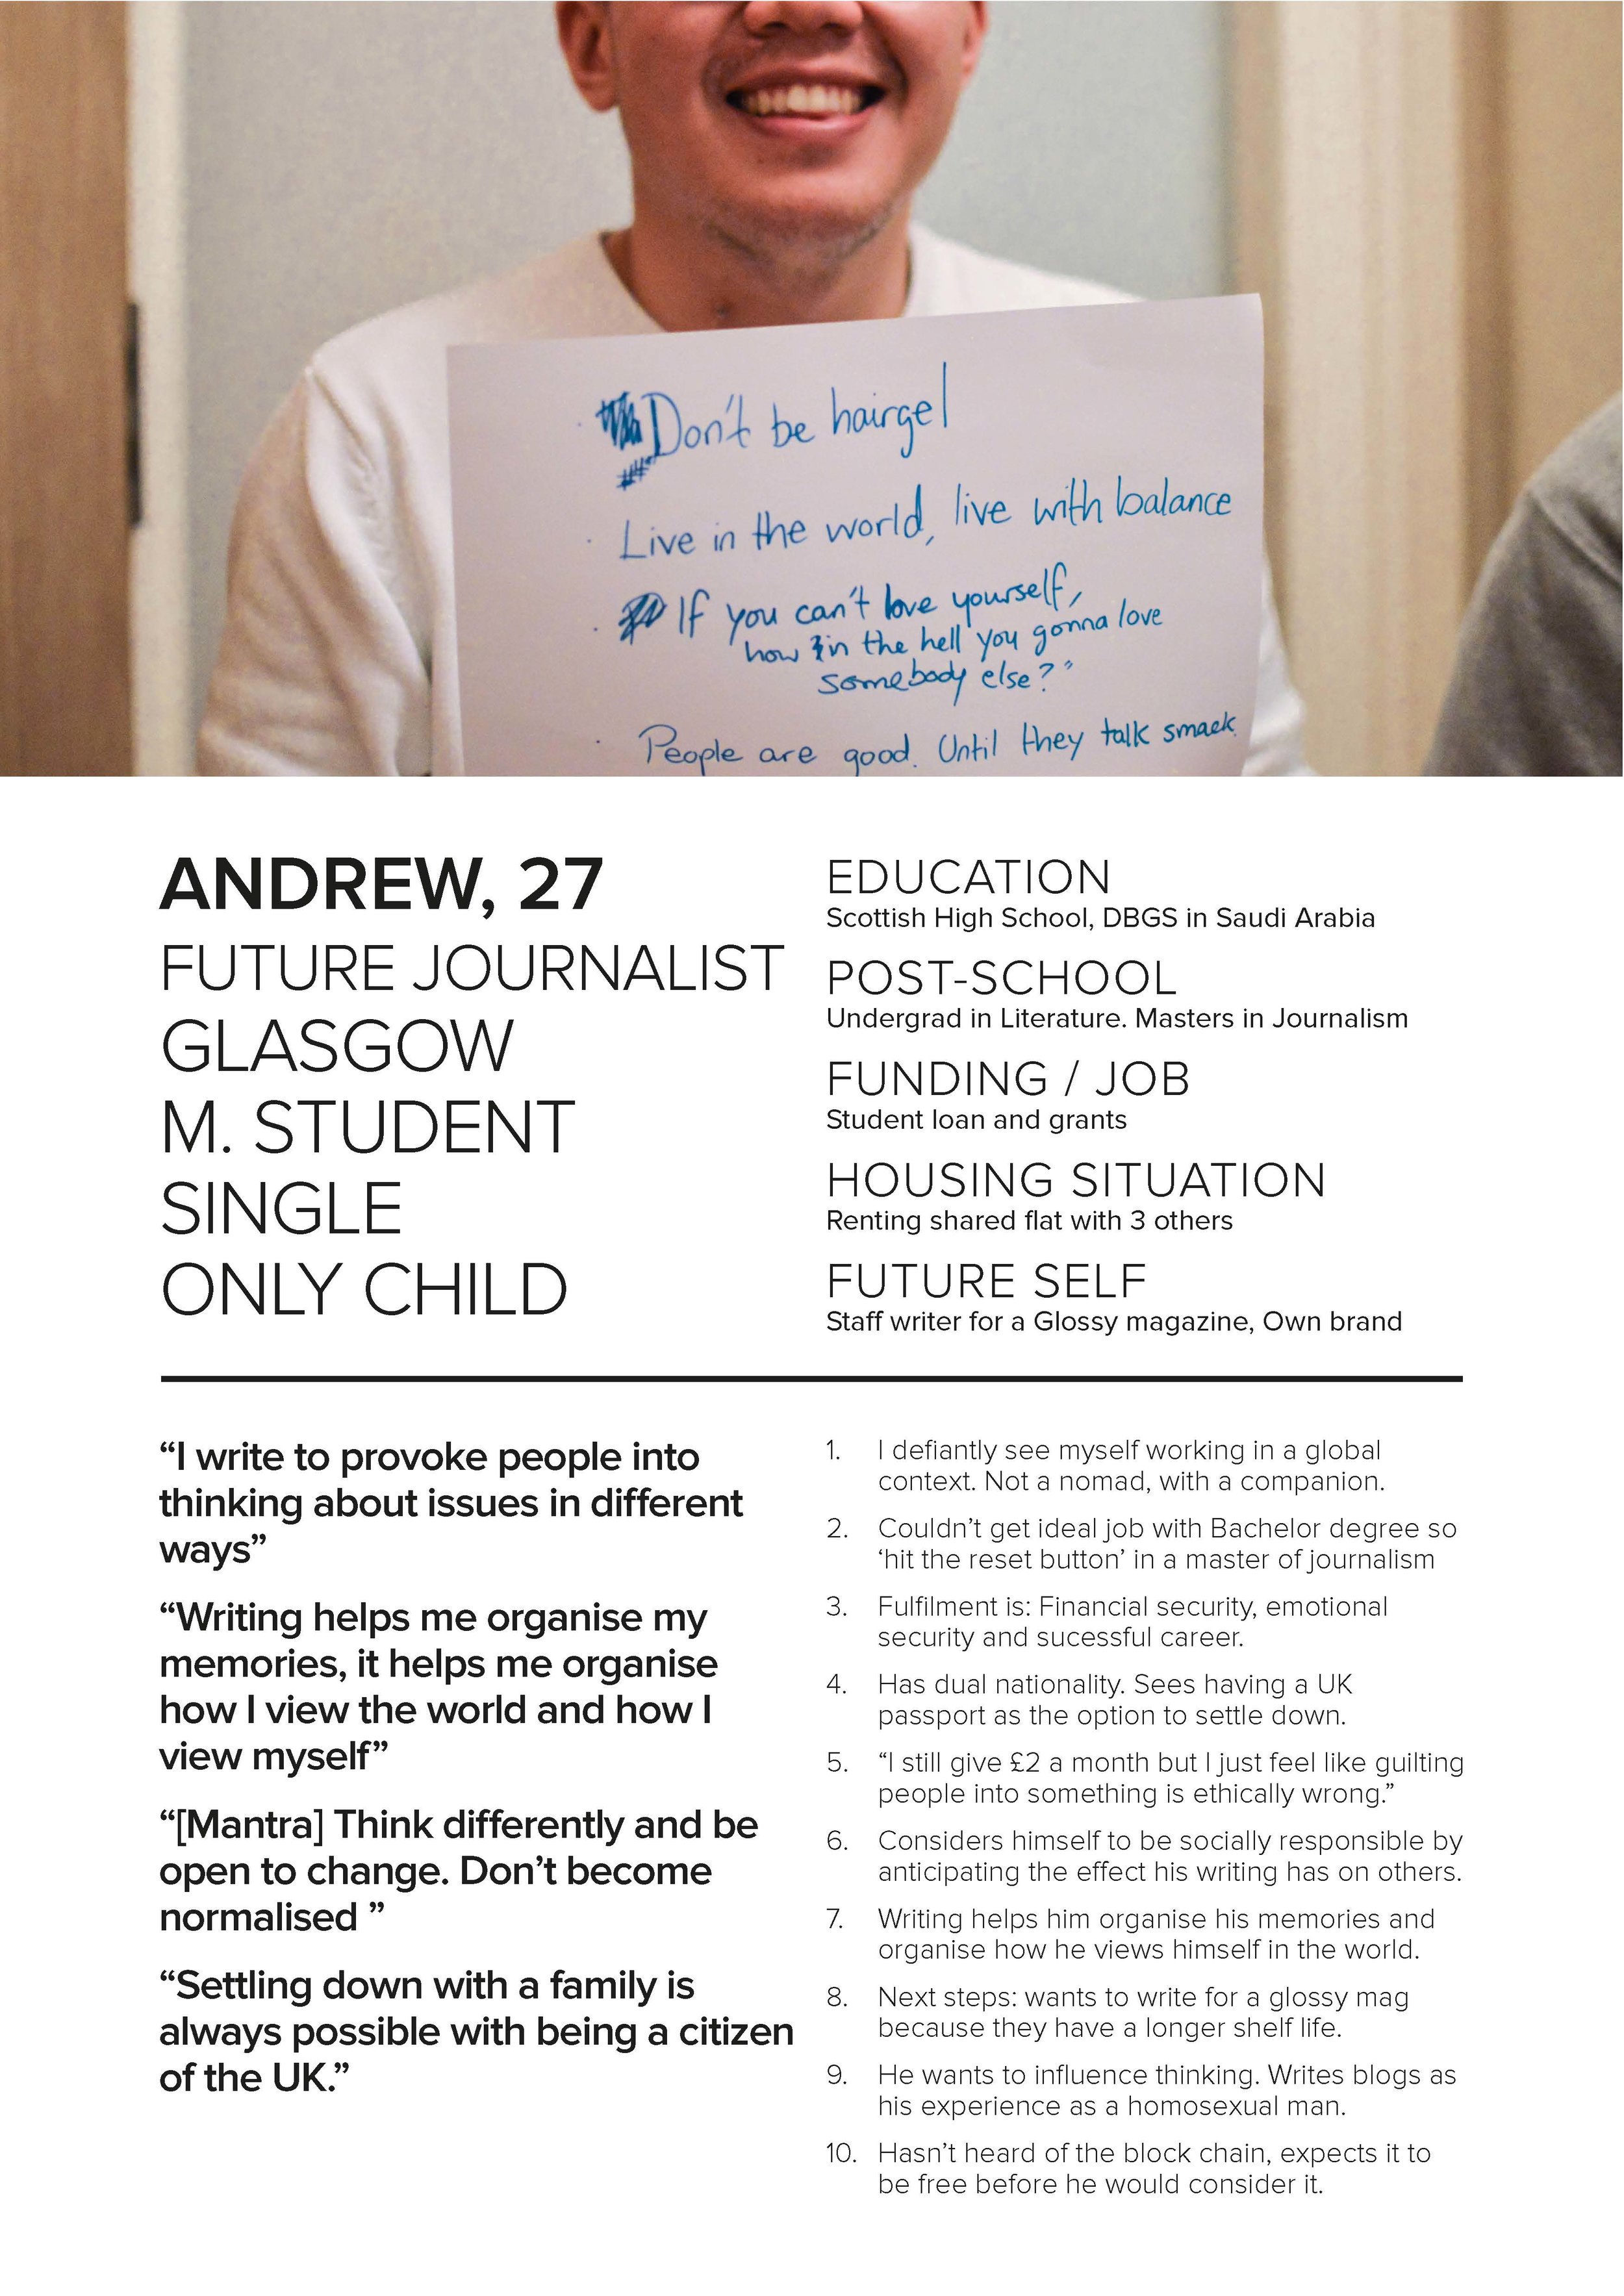 Don't be hairgel
Live in the world, live with balance
If you can't love yourself,
how in the hell you gonna love
somebody else?"
People are good. Until they talk smack
ANDREW, 27
FUTURE JOURNALIST
GLASGOW
M. STUDENT
SINGLE
ONLY CHILD
EDUCATION
Scottish High School, DBGS in Saudi Arabia
POST-SCHOOL
Undergrad in Literature. Masters in Journalism
FUNDING / JOB
Student loan and grants
HOUSING SITUATION
Renting shared flat with 3 others
FUTURE SELF
Staff writer for a Glossy magazine, Own brand
“I write to provoke people into
thinking about issues in different
ways”
“Writing helps me organise my
memories, it helps me organise
how I view the world and how I
view myself”
“[Mantra] Think differently and be
open to change. Don’t become
normalised ”
“Settling down with a family is
always possible with being a citizen
of the UK.”
1. I defiantly see myself working in a global
context. Not a nomad, with a companion.
2. Couldn’t get ideal job with Bachelor degree so
‘hit the reset button’ in a master of journalism
3. Fulfilment is: Financial security, emotional
security and sucessful career.
4. Has dual nationality. Sees having a UK
passport as the option to settle down.
5. “I still give £2 a month but I just feel like guilting
people into something is ethically wrong.”
6. Considers himself to be socially responsible by
anticipating the effect his writing has on others.
7. Writing helps him organise his memories and
organise how he views himself in the world.
8. Next steps: wants to write for a glossy mag
because they have a longer shelf life.
9. He wants to influence thinking. Writes blogs as
his experience as a homosexual man.
10. Hasn’t heard of the block chain, expects it to
be free before he would consider it.